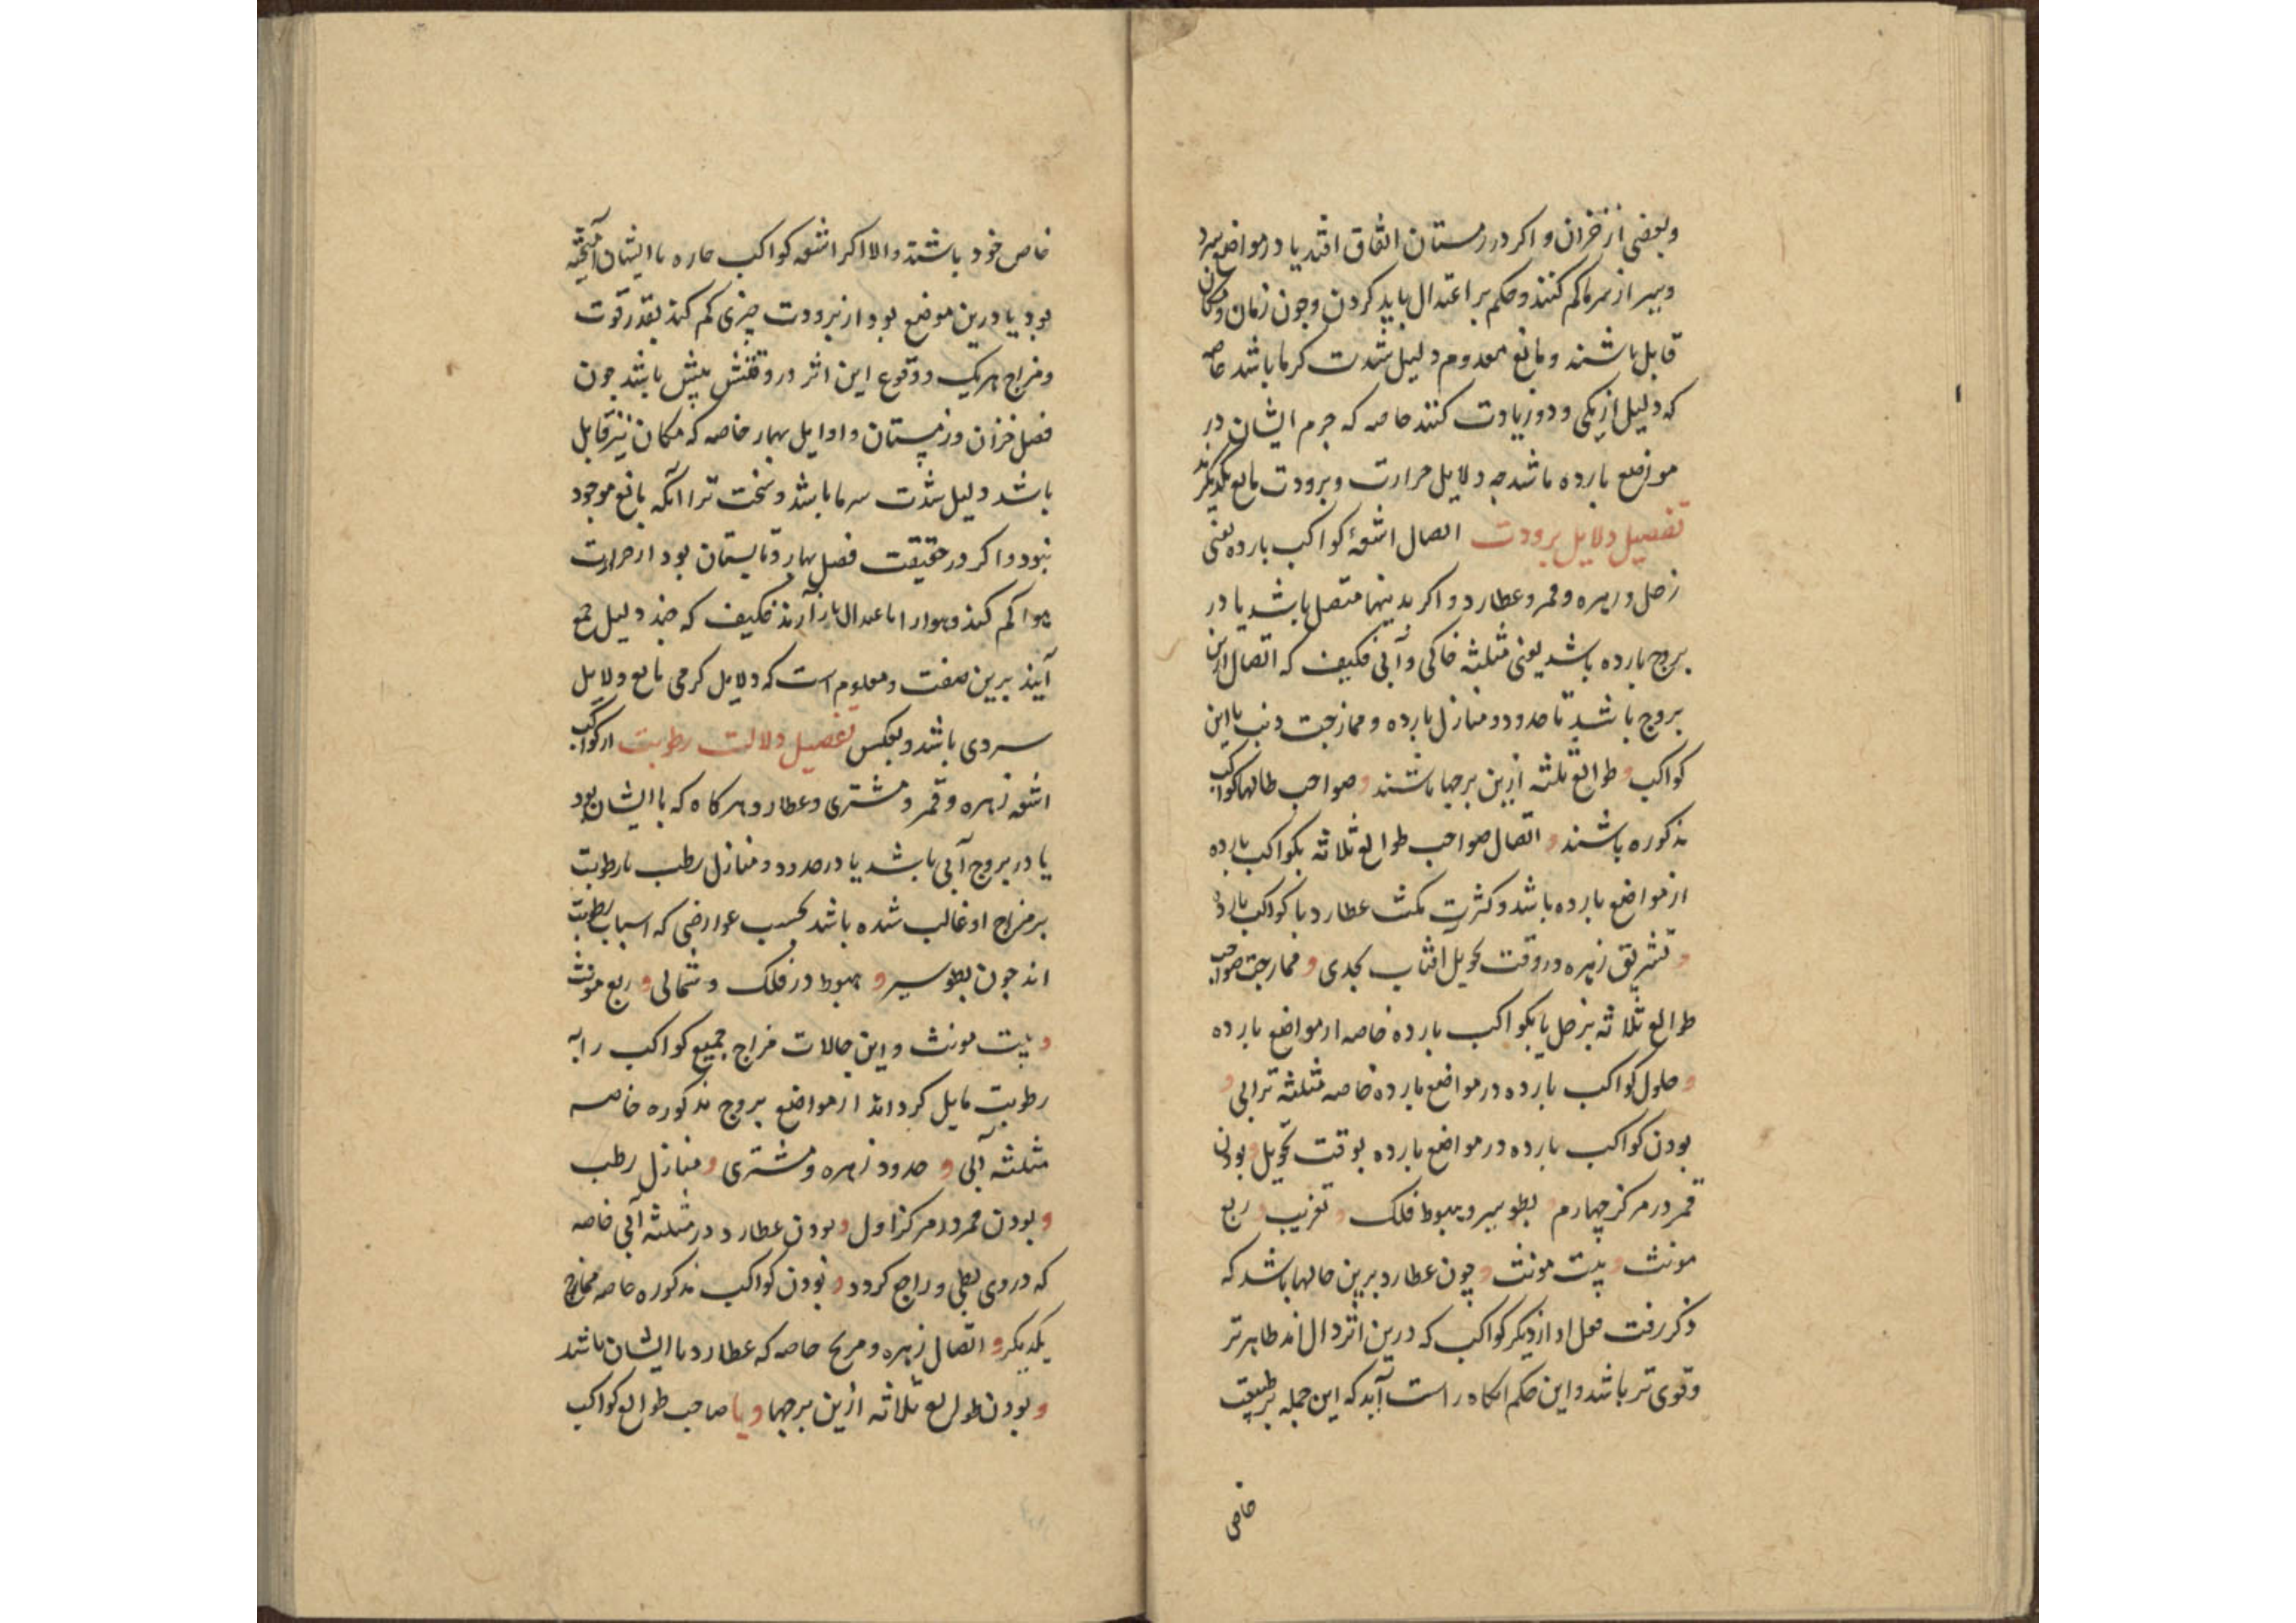 وبعضی از خزان و اکر در زمستان اتفاق افتد یا در مواضع سرد
وسیر از سرما کم کنند و حکم بر اعتدال باید کردن وچون زمان و مکان
قابل باشند و مانع معدوم دلیل شدت کرما باشد خاصه
که دلیل از یکی و دو زیادت کنند خاصه که جرم ایشان در
مواضع بارده باشد چه دلایل حرارت و برودت مانع یکدیکرند
تفصیل دلایل برودت اتصال اشعهٔ کواکب بارده یعنی
زحل و زهره و قمر و عطارد و اکر بدینها متصل باشد یا در
بروج بارده باشد یعنی مثلثه خاکی و آبی فکیف که اتصال ازین
بروج باشد تا حدود و منازل بارده و ممازجت ذنب با این
کواکب و طوالع ثلثه ازین برجها باشند و صواحب طالعها کواکب
مذکوره باشند و اتصال صواحب طوالع ثلاثه بکواکب بارده
از مواضع بارده باشد و کثرت مکث عطارد با کواکب بارده
و تشریق زهره در وقت تحویل افتاب بجدی و ممازجت صواحب
طوالع ثلاثه بزحل یا بکواکب بارده خاصه از مواضع بارده
و حلول کواکب بارده در مواضع بارده خاصه مثلثه ترابی و
بودن کواکب بارده در مواضع بارده بوقت تحویل و بودن
قمر در مرکز چهارم و بطو سیر و هبوط فلک و تغریب و ربع
مونث و بیت مونث و چون عطارد برین حالها باشد که
ذکر رفت فعل او از دیکر کواکب که درین اثر دال اند ظاهرتر
وقوی تر باشد و این حکم انکاه راست آید که این جمله بر طبیعت
خاص
خاص خود باشند والا اکر اشعه کواکب حاره با ایشان آمیخته
بود یا درین موضع بود از برودت چیزی کم کند بقدر قوت
ومزاج هریک و وقوع این اثر در وقتش بیش باشد چون
فصل خزان و زمستان و اوایل بهار خاصه که مکان نیز قابل
باشد دلیل شدت سرما باشد و سخت تر اانکه مانع موجود
نبود و اکر در حقیقت فصل بهار و تابستان بود از حرارت
هوا کم کند و هوا را باعتدال باز آرند فکیف که چند دلیل جمع
آیند برین صفت و معلوم است که دلایل کرمی مانع دلایل
سردی باشد وبعکس تفصیل دلالت رطوبت از کواکب
اشعه زهره و قمر و مشتری و عطارد و هرکاه که با ایشان بود
یا در بروج آبی باشد یا در حدود و منازل رطب یا رطوبت
بر مزاج او غالب شده باشد بحسب عوارضی که اسباب رطوبت
اند چون بطو سیر و هبوط در فلک و شمالی و ربع مونث
و بیت مونث و این حالات مزاج جمیع کواکب را به
رطوبت مایل کرداند از مواضع بروج مذکوره خاصه
مثلثه آبی و حدود زهره و مشتری و منازل رطب
و بودن قمر در مرکز اول و بودن عطارد در مثلثه آبی خاصه
که در وی بطی و راجع کردد و بودن کواکب مذکوره خاصه ممازج
یکدیکر و اتصال زهره و مریخ خاصه که عطارد با ایشان باشد
و بودن طوالع ثلاثه ازین برجها و یا صاحب طوالع کواکب